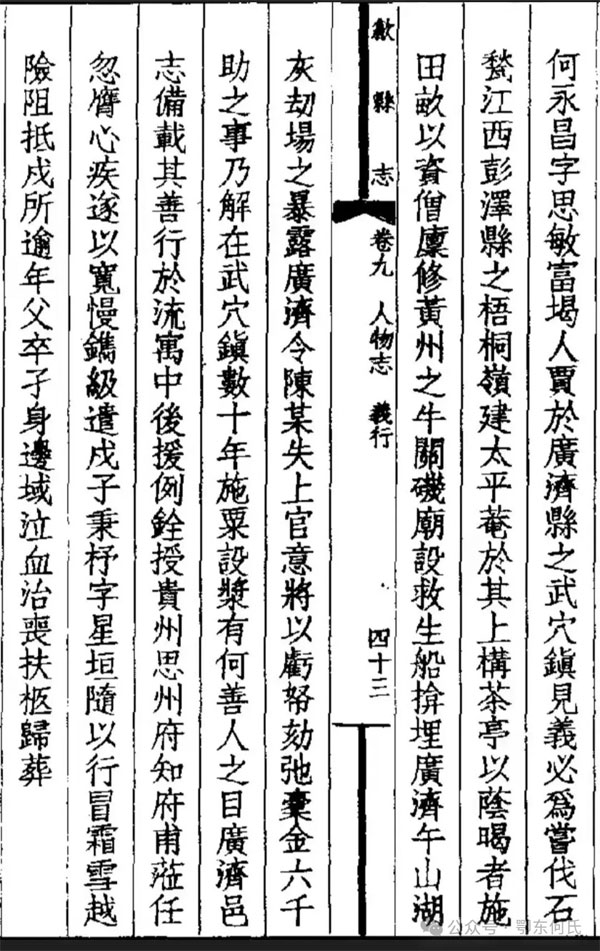 何永昌字思敏富堨人賈於廣濟縣之武穴鎮見義必爲嘗伐石
甃江西彭澤縣之梧桐嶺建太平菴於其上構茶亭以蔭暍者施
田畝以資僧廩修黃州之牛關磯廟設救生船揜埋廣濟午山湖
歙縣志 卷九 人物志 義行 四十三
灰劫場之暴露廣濟令陳某失上官意將以虧帑劾弛橐金六千
助之事乃解在武穴鎮數十年施粟設漿有何善人之目廣濟邑
志備載其善行於流寓中後援例銓授貴州思州府知府甫蒞任
忽膺心疾遂以寬慢鐫級遣戍子秉杼字星垣隨以行冒霜雪越
險阻抵戍所逾年父卒孑身邊域泣血治喪扶柩歸葬
公众号·鄂东何氏